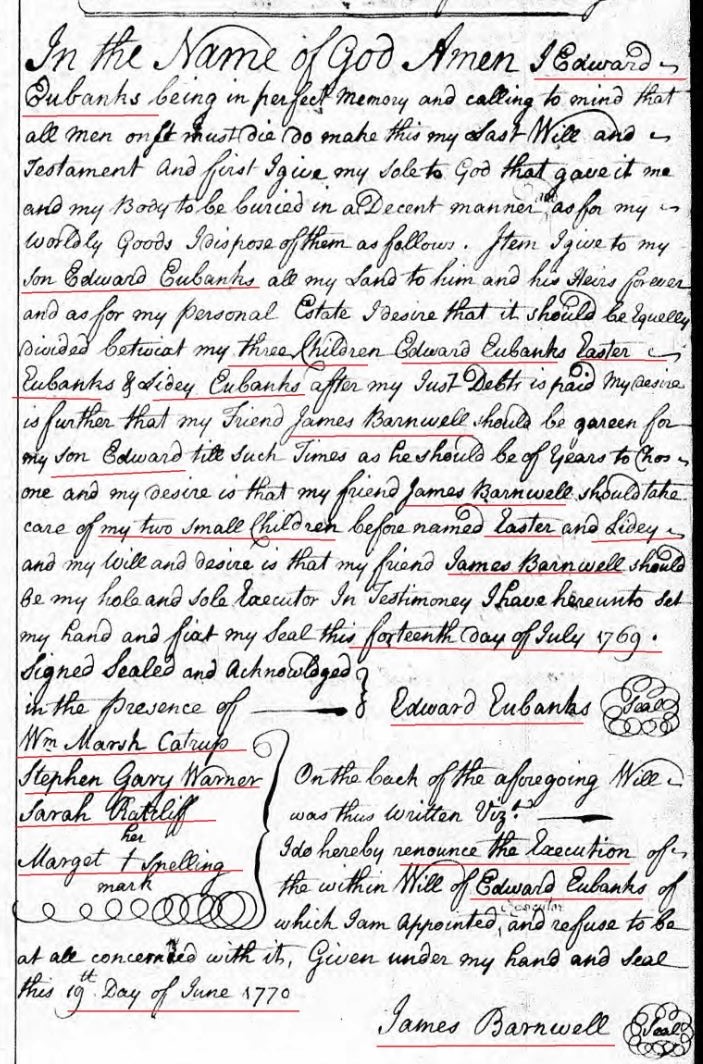 In the Name of God Amen I Edward
Eubanks being in perfect Memory and calling to mind that
all men onst must die do make this my Last Will and
Testament And first I give my Sole to God that gave it me
and my Body to be buried in a Decent manner and as for my
Worldly Goods I dispose of them as follows. Item I give to my
son Edward Eubanks all my Land to him and his Heirs forever
and as for my personal Estate I desire that it should be Equelly
divided betwixt my three Children Edward Eubanks Easter
Eubanks & Lidey Eubanks after my Just Debts is paid My desire
is further that my Friend James Barnwell should be gareen for
my son Edward till such Times as he should be of Years to Chos
one and my desire is that my friend James Barnwell should take
care of my two small Children before named Easter and Lidey
and my Will and desire is that my friend James Barnwell should
be my hole and sole Executor In Testimoney I have hereunto Set
my hand and fixt my Seal this forteenth Day of July 1769.
Signed Sealed and Acknowldged
in the Presence of Edward Eubanks Seal
Wm Marsh Catrup
Stephen Gary Warner
Sarah Ratcliff
her
Marget † Snelling
mark
On the back of the aforegoing Will
was thus written Vizt.
I do hereby renounce the Execution of
the within Will of Edward Eubanks of
which I am Appointed, Executor and refuse to be
at all concerned with it, Given under my hand and Seal
this 19th Day of June 1770
James Barnwell Seal